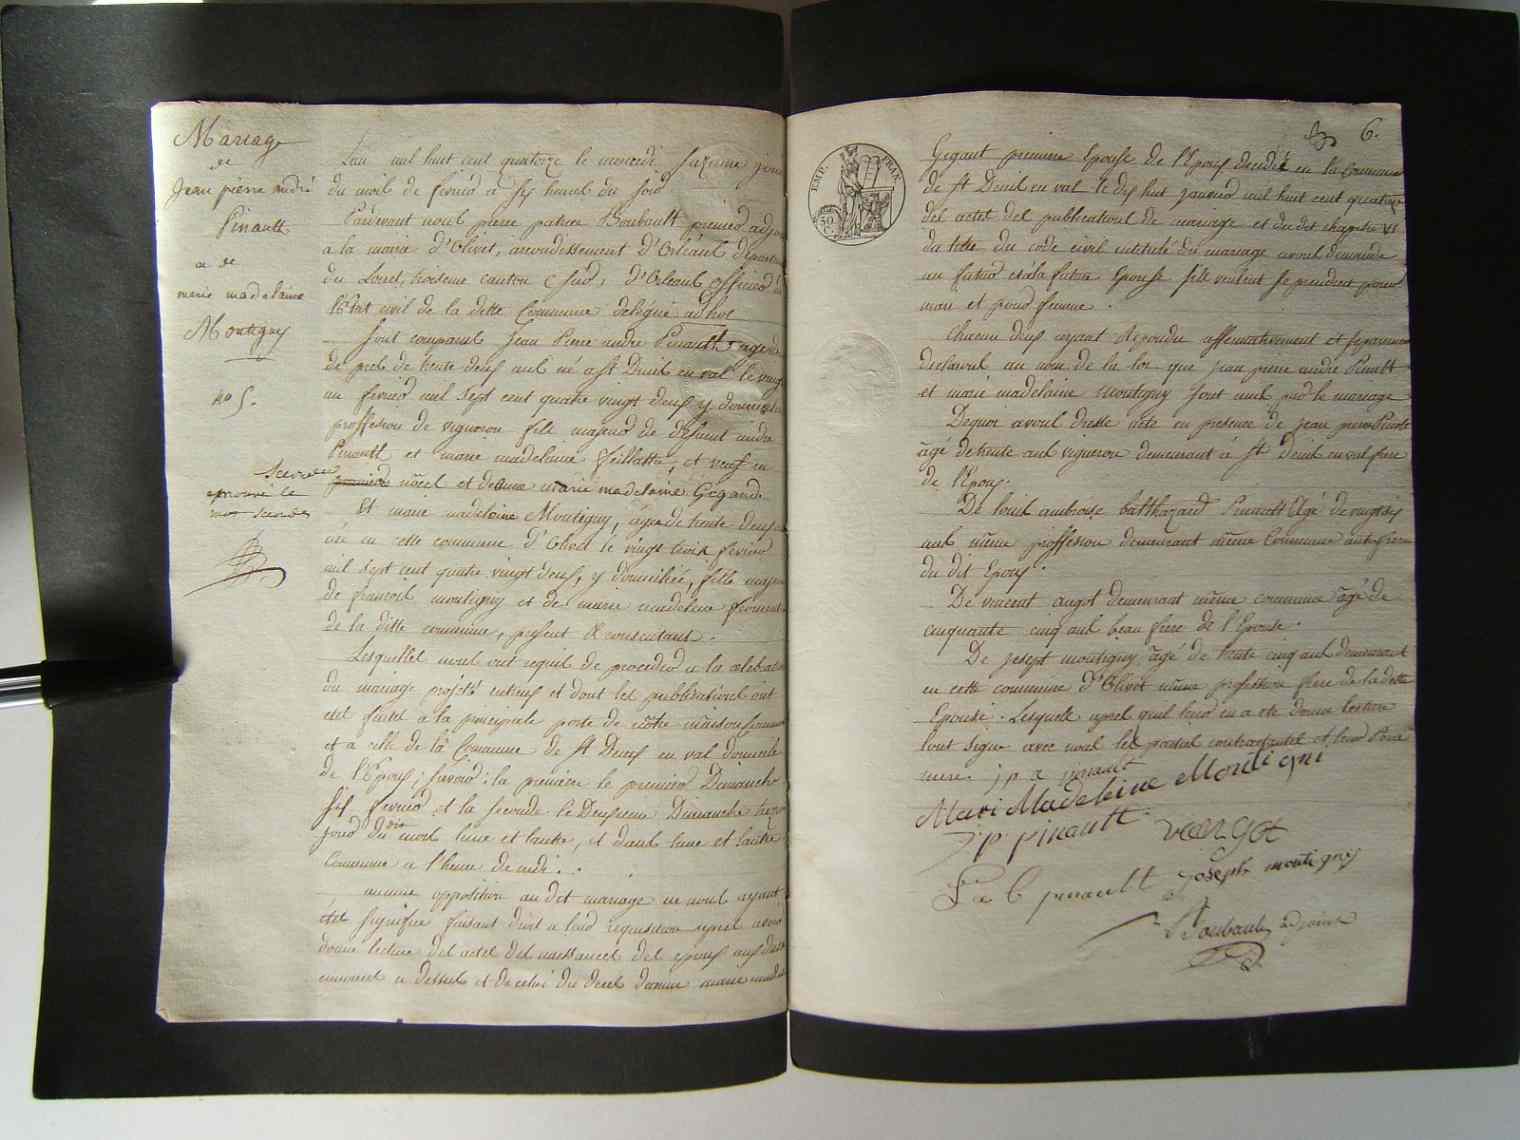 Mariage
de
Jean pierre andré
Pinault
et de
marie madelaine
Montigny
no 5.
approuvé le
mot secondes
Lan mil huit cent quatorze le mercredi Seizieme jour
du mois de fevrier a six heures du soir
Pardevant nous pierre patrice Boubault premier adjoint
a la mairie d'Olivet, arrondissement d'Orléans départem
du Loiret, troisieme canton Sud, d'Orleans officier de
l'Etat civil de la ditte Commune délégué ad hoc
Sont comparus Jean Pierre andré Pinault agé
de pres de trente deux ans né a St Denis en val le vingt
un fevrier mil sept cent quatre vingt deux y domicilié
proffession de vigneron fils majeur de defunt andré
Pinault et marie madelaine et veuf en
noces et de anne marie madelaine Gegande
Et marie madelaine Montigny, agée de trente deux ans
née en cette commune d'Olivet le vingt trois fevrier
mil sept cent quatre vingt deux, y domiciliée, fille majeure
de francois montigny et de marie madelaine froment
de la ditte commune, present & consentant.
Lesquelles nous ont requis de proceder a la celebration
du mariage projeté entreux et dont les publications ont
eté faites a la principale porte de nôtre maison Commune
et a celle de la Commune de St Denis en val domicile
de l'Epoux; Savoir: la premiere le premier Dimanche
six fevrier et la seconde le Deuxieme Dimanche treze
jour du dit mois lune et lautre, et dans lune et lautre
Commune a l'heure de midi.
aucune opposition au dit mariage ne nous ayant
eté signifiée faisant droit a leur requisition apres avoir
donné lecture des actes des naissances des epoux aux dattes
enoncees ci dessus et de celui du deces danne marie madel
6.
EMP. FRAN.
50 C.
Gegant premiere Epouse de l'Epoux decedée en la Commune
de St Denis en val le dix huit janvier mil huit cent quatorze
des actes des publications de mariage et du dit chapitre VI
du titre du code civil intitulé du mariage avons demandé
au futur et a la future Epouse s'ils veulent se prendre pour
mari et pour femme.
Chacun deux ayant repondu affirmativement et separement
declarons au nom de la loi que jean pierre andré Pinault
et marie madelaine Montigny sont unis par le mariage
Dequoi avons dressé acte en presence de jean pierre Pinault
âgé de trente ans vigneron demeurant à St Denis en val frere
de l'Epoux.
De louis ambroise balthazard Pinault Agé de vingt six
ans même proffession demeurant même Commune autre frere
du dit Epoux.
De vincent augot demeurant même commune âgé de
cinquante cinq ans beau frere de l'Epouse.
De joseph montigny âgé de trente cinq ans demeurant
en cette commune d'Olivet même profession frere de la ditte
Epouse. Lesquels apres quil leur en a été donné lecture
sont signé avec nous les parties contractantes et leur Pere
mere. j p a pinault
Mari Madeleine Montigni
J p pinault
vangot
L a b pinault
joseph montignis
Boubault adjoint